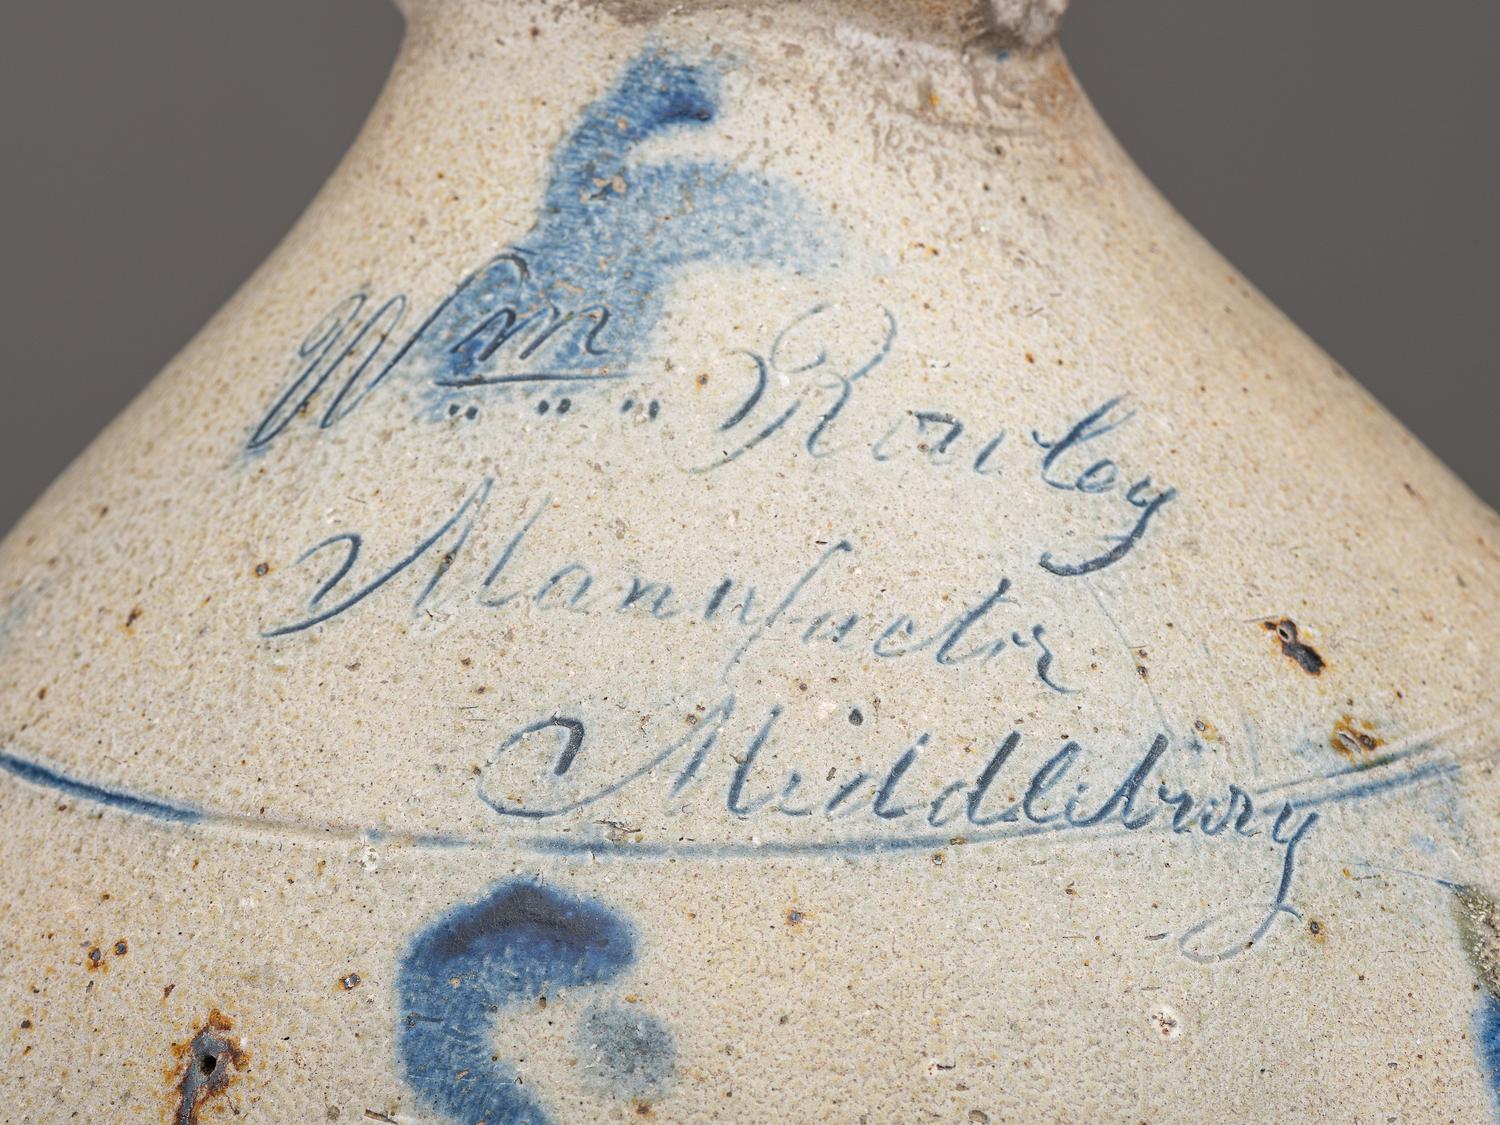 Wm Rowley
Manufactor
Middlebury